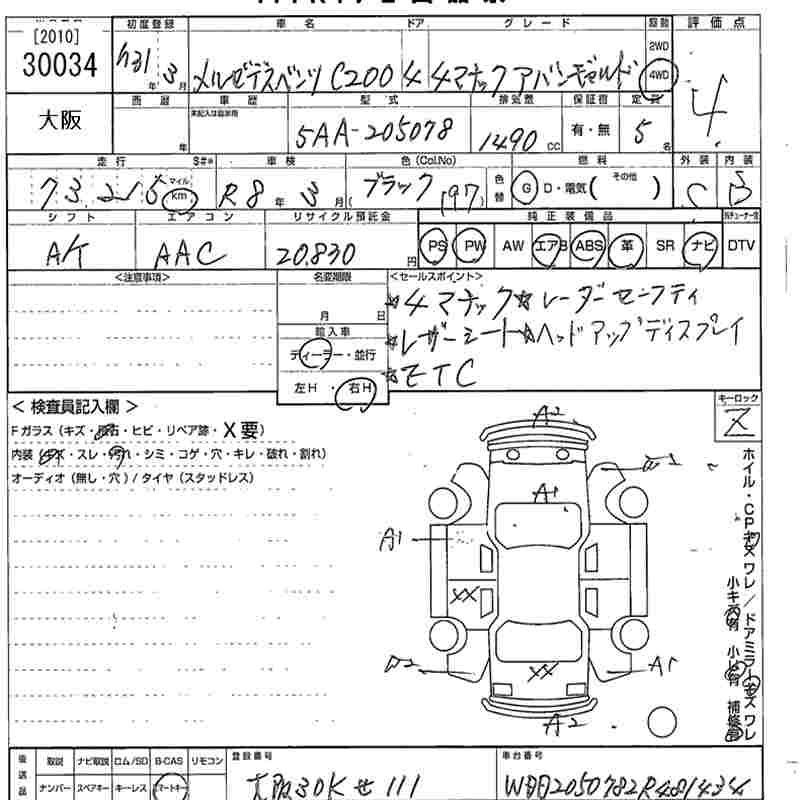 [2010]
30034
大阪
初度登録 車名 ドア グレード 駆動 評価点
H31年 3月 メルセデスベンツ C200 4 4マチック アバンギャルド 2WD 4WD 4
西暦 車歴 型式 排気量 保証書 定員
年 未記入は自家用 5AA-205078 1490 CC 有・無 5名
走行 S#* 車検 色(Col.No) 色替 燃料 外装 内装
73215 マイル km R8年 3月 ブラック (197) G D・電気( その他 ) C B
シフト エアコン リサイクル預託金 純正装備品
AT AAC 20.830円 PS PW AW エアB ABS 革 SR ナビ DTV
<注意事項> 名変期限 <セールスポイント>
月 日
☆4マチック☆レーダーセーフティ
輸入車
☆レザーシート☆ヘッドアップディスプレイ
ディーラー・並行
☆ETC
左H・右H
<検査員記入欄> キーロック
Z
Fガラス(キズ・飛石・ヒビ・リペア跡・X要)
内装(キズ・スレ・汚れ・シミ・コゲ・穴・キレ・破れ・割れ)
オーディオ(無し・穴)/タイヤ(スタッドレス)
A2
A1
A1
XX
A1
XX
A2
ホイル・CPキズ ワレ/ドアミラーキズ ワレ
小キズ有 小凹有 補修有
後送品 取説 ナビ取説 ロム/SD B-CAS リモコン 登録番号 車台番号
ナンバー スペアキー キーレス スマートキー 大阪30Kせ111 WDD2050782R481434